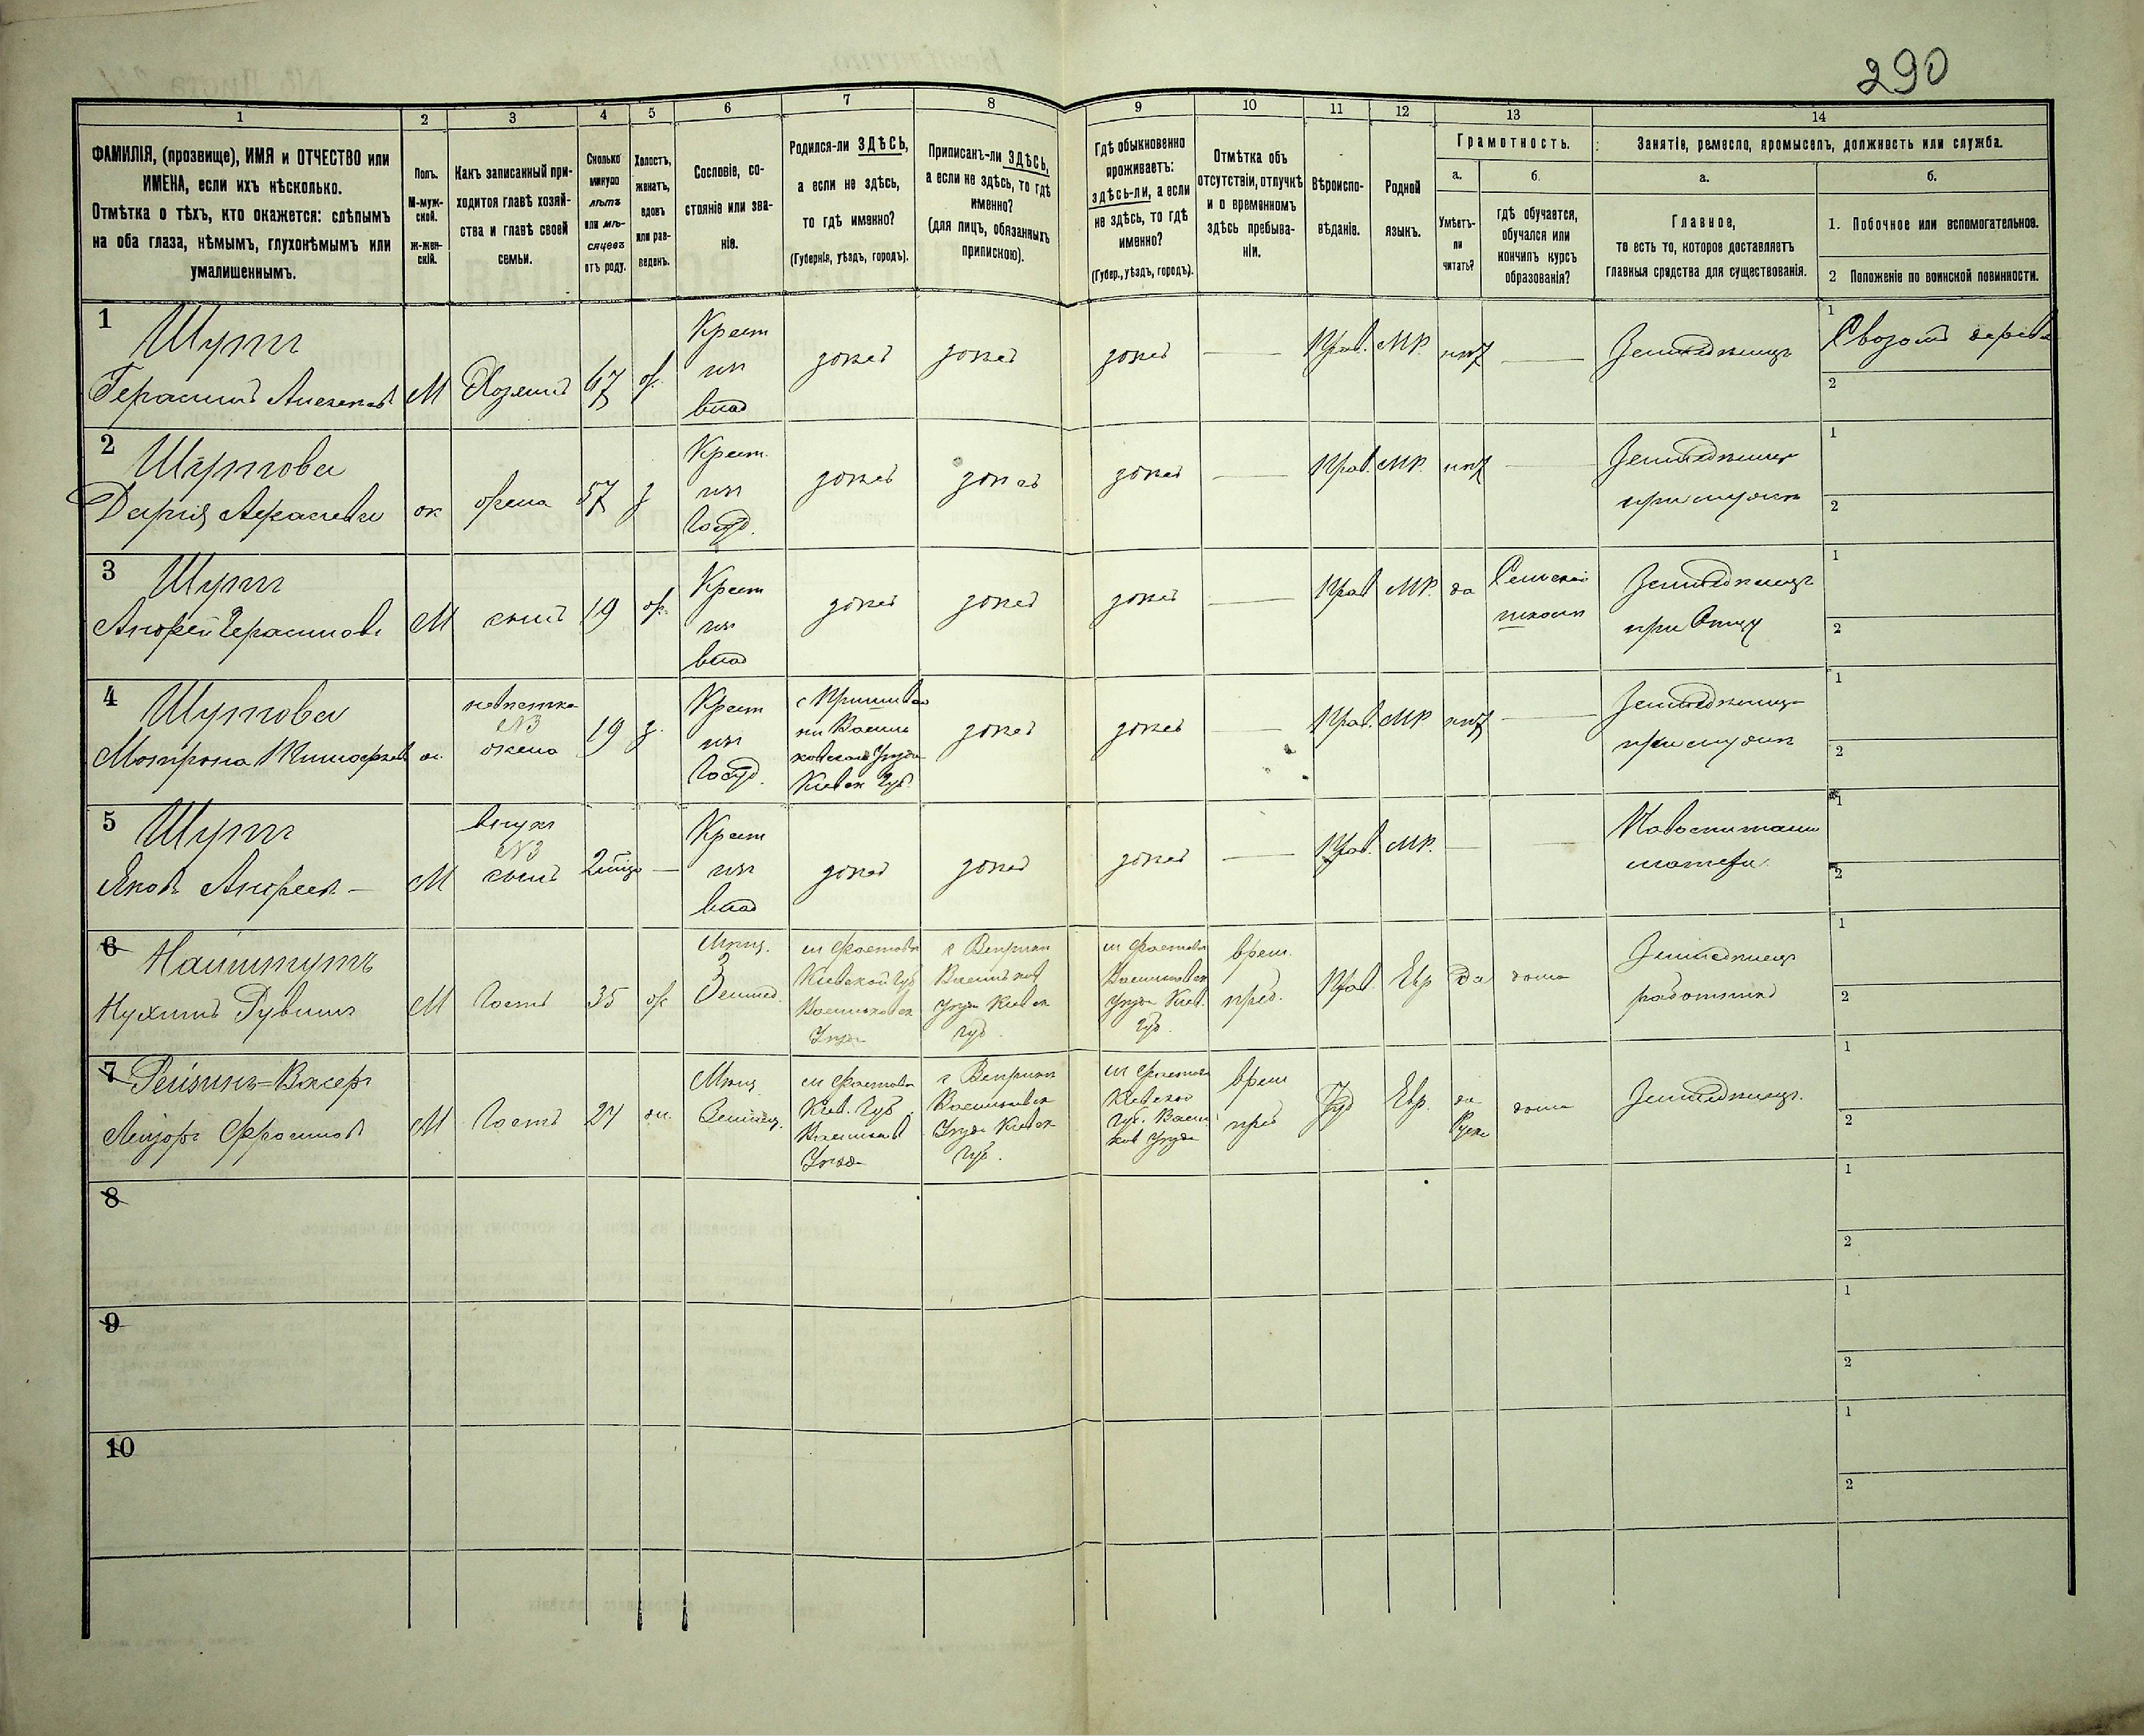 290
1
2
3
4
5
6
7
8
9
10
11
12
13
14
ФАМИЛІЯ, (прозвище), ИМЯ и ОТЧЕСТВО или
ИМЕНА, если ихъ нѣсколько.
Отмѣтка о тѣхъ, кто окажется: слѣпымъ
на оба глаза, нѣмымъ, глухонѣмымъ или
умалишеннымъ.
Полъ.
М-муж-
ской.
ж-жен-
скій.
Какъ записанный при-
ходится главѣ хозяй-
ства и главѣ своей
семьи.
Сколько
минуло
лѣтъ
или мѣ-
сяцевъ
отъ роду.
Холостъ,
женатъ,
вдовъ
или раз-
веденъ.
Сословіе, со-
стояніе или зва-
ніе.
Родился-ли ЗДѢСЬ,
а если не здѣсь,
то гдѣ именно?
(Губернія, уѣздъ, городъ).
Приписанъ-ли ЗДѢСЬ,
а если не здѣсь, то гдѣ
именно?
(для лицъ, обязанныхъ
припискою).
Гдѣ обыкновенно
проживаетъ:
здѣсь-ли, а если
не здѣсь, то гдѣ
именно?
(Губер., уѣздъ, городъ).
Отмѣтка объ
отсутствіи, отлучкѣ
и о временномъ
здѣсь пребыва-
ніи.
Вѣроиспо-
вѣданіе.
Родной
языкъ.
Грамотность.
а.
Умѣетъ-
ли
читать?
б.
гдѣ обучается,
обучался или
кончилъ курсъ
образованія?
Занятіе, ремесло, промыселъ, должность или служба.
а.
Главное,
то есть то, которое доставляетъ
главныя средства для существованія.
б.
1. Побочное или вспомогательное.
2 Положеніе по воинской повинности.
1
Шутъ
Герасимъ
М
Хозяинъ
67
ж.
Крест
изъ
влад
здѣсь
здѣсь
здѣсь
Прав.
МР.
нѣтъ
Земледѣлецъ
1
2
2
Шутова
Дарія
ж
жена
57
з
Крест.
изъ
Госуд.
здѣсь
здѣсь
здѣсь
Прав.
МР.
нѣтъ
Земледѣлецъ
при мужѣ
1
2
3
Шутъ
Андрей Герасимовъ
М
сынъ
19
ж.
Крест
изъ
влад
здѣсь
здѣсь
здѣсь
Прав
МР.
да
Сельской
школѣ
Земледѣлецъ
при Отцу
1
2
4
Шутова
Мотрона
ж.
невѣстка
№3
жена
19
з.
Крест
изъ
Госуд.
Кіевск Губ.
здѣсь
здѣсь
Прав.
МР
нѣтъ
Земледѣлецъ
при мужѣ
1
2
5
Шутъ
Яковъ Андреев
М
внукъ
№3
сынъ
Крест
изъ
влад
здѣсь
здѣсь
здѣсь
Прав.
МР.
матери
1
2
6
М
Гость
35
ж
Мѣщ.
м Фастовъ
Кіевской Губ
Васильковск
Уѣзда
Уѣзда Кіевск
губ.
м Фастовъ
Васильковск
Уѣзда Кіев.
губ.
врем.
преб.
Евр
Да
дома
Земледѣлецъ
работникъ
1
2
7
М
Гость
Мѣщ
м Фастовъ
Кіев. Губ.
Уѣзда
Уѣзда Кіевск
Губ.
м Фастовъ
Кіевской
Губ. Василь
ков Уѣзда
врем
преб
Іуд
Евр.
да
дома
Земледѣлецъ.
1
2
8
1
2
9
1
2
10
1
2